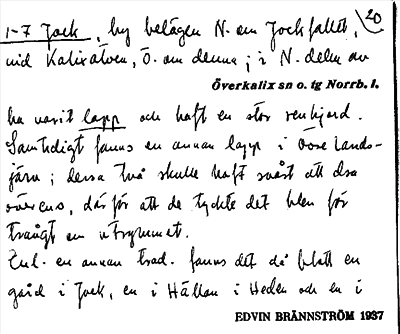 1-7 Jock, by belägen N. om Jockfallet, 20
vid Kalixälven, Ö. om denna; i N. delen av
Överkalix sn o. tg Norrb. l.
ha varit lapp och haft en stor renhjord.
Samtidigt fanns en annan lapp i Övre Lands-
järv; dessa två skulle haft svårt att dra
överens, därför att de tyckte det blev för
trångt om utrymmet.
Enl. en annan trad. fanns det då blott en
gård i Jock, en i Hällan i Heden och en i
EDVIN BRÄNNSTRÖM 1937